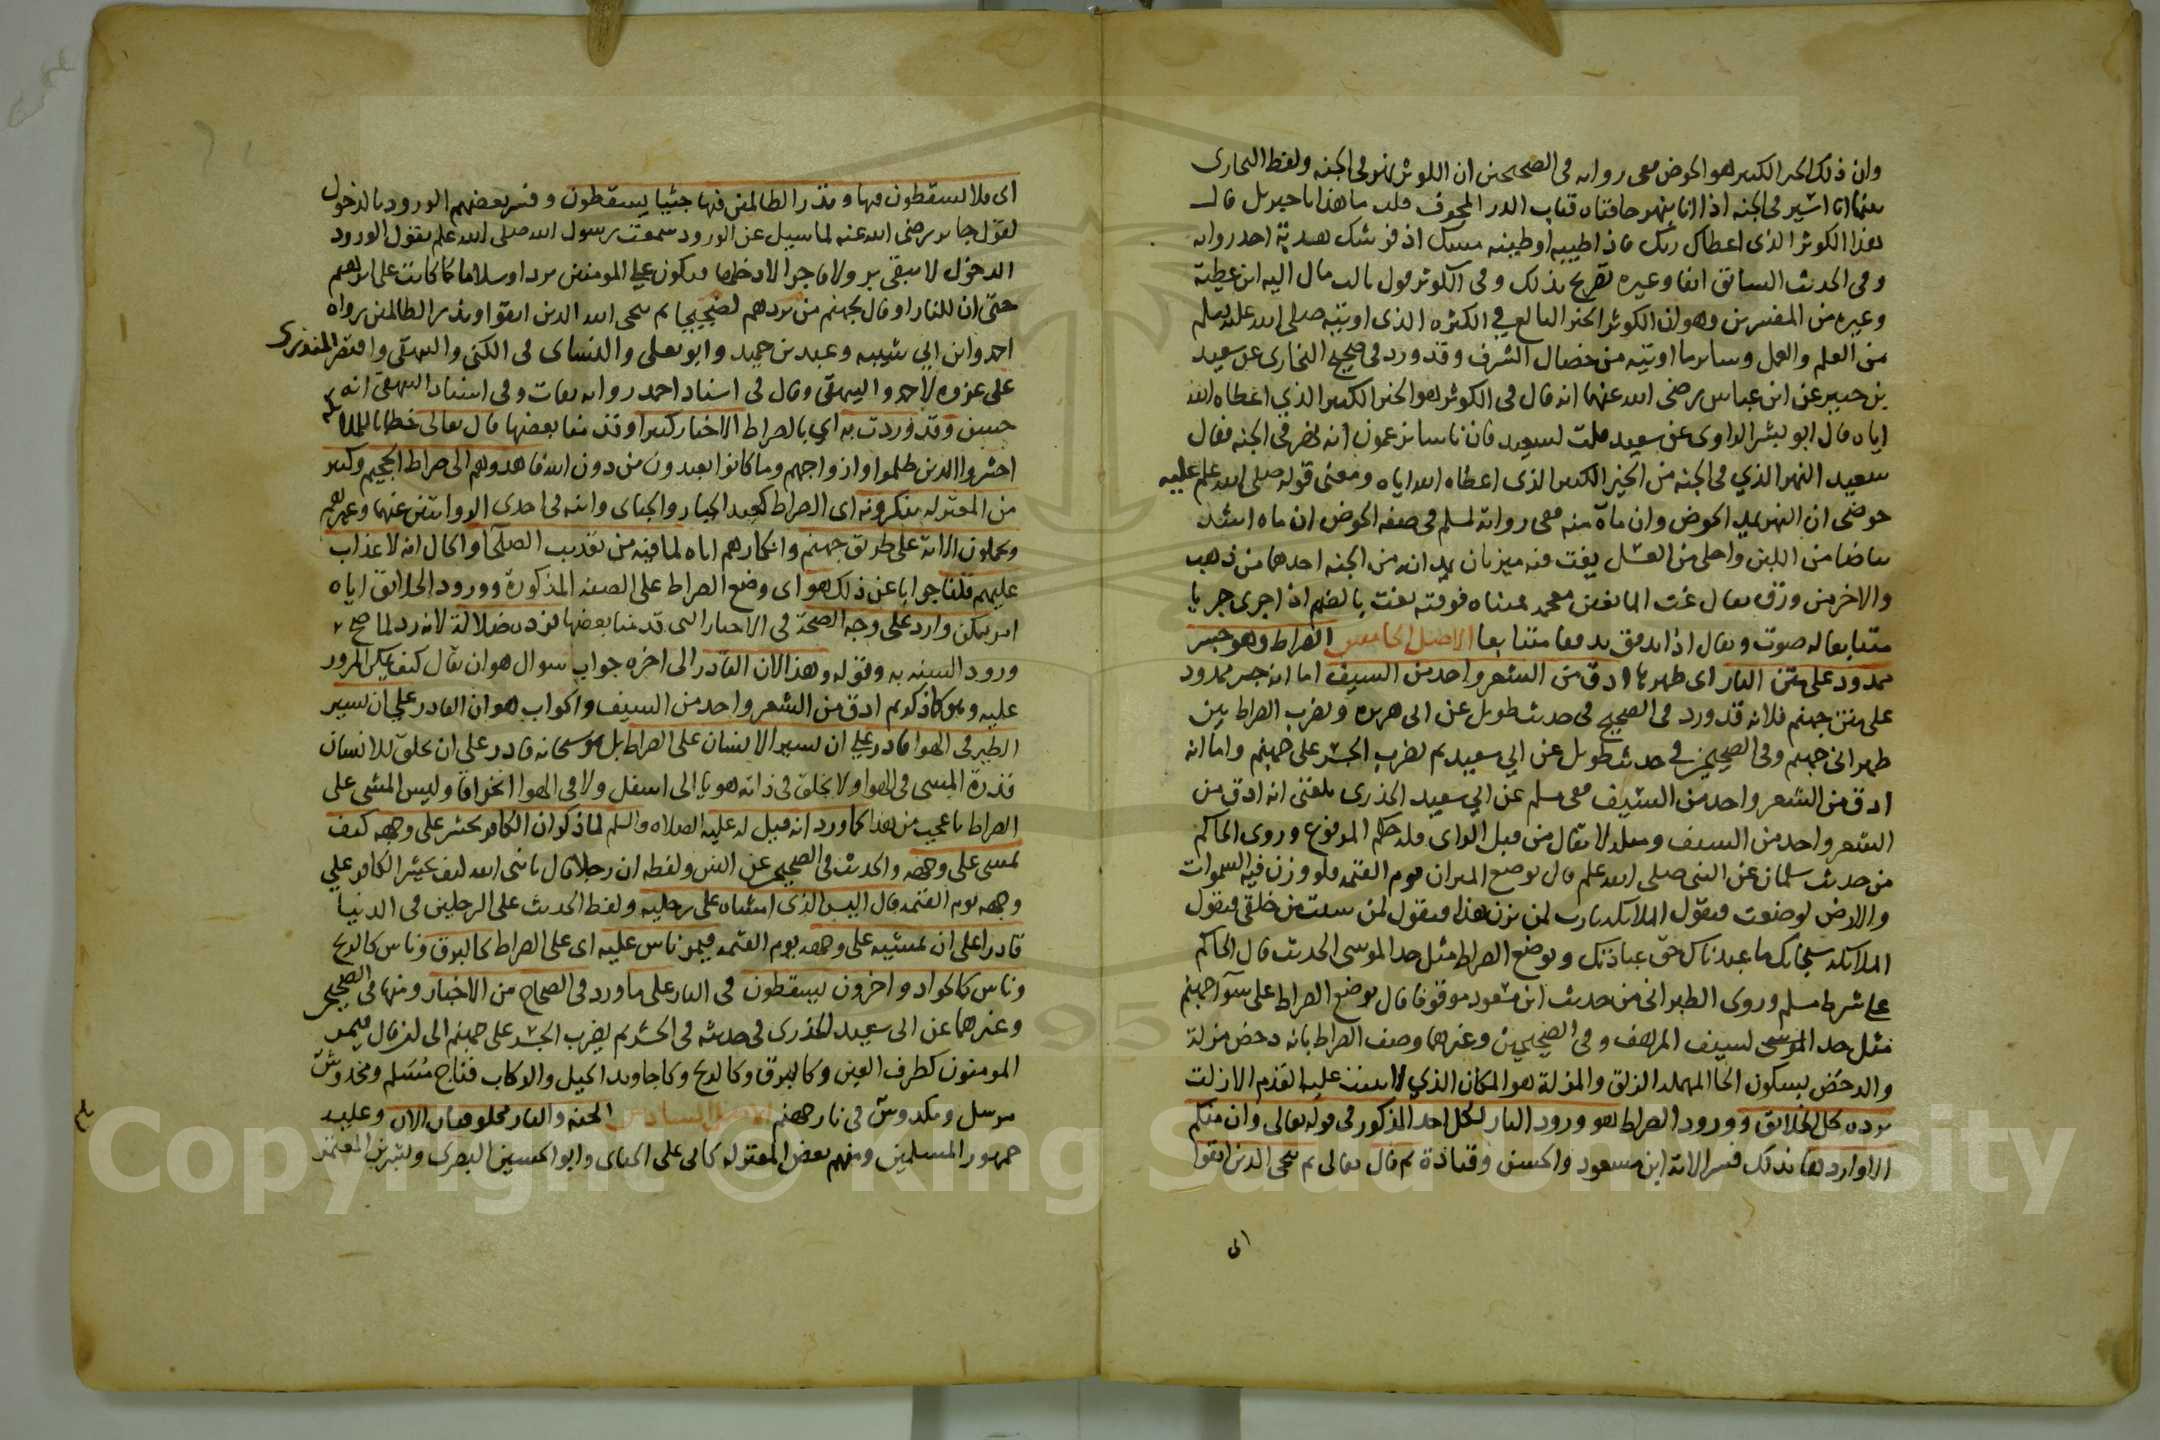 وان ذلك الخير الكثير هو الحوض ففى رواية فى الصحيحين ان الكوثر نهر فى الجنة ولفظ البخارى
بينما انا اسير فى الجنة اذا انا بنهر حافتاه قباب الدر المجوف قلت ما هذا يا جبريل قال
هذا الكوثر الذى اعطاك ربك فاذا طيبه او طينه مسك اذفر شك هدبة احد رواته
وفى الحديث السابق انفا وغيره تصريح بذلك وفى الكوثر قول ثالث مال اليه ابن عطية
وغيره من المفسرين وهو ان الكوثر الخير البالغ فى الكثرة الذى اوتيه صلى الله عليه وسلم
من العلم والعمل وسائر ما اوتيه من خصال الشرف وقد ورد فى صحيح البخارى عن سعيد
بن جبير عن ابن عباس رضى الله عنهما انه قال فى الكوثر هو الخير الكثير الذي اعطاه الله
اياه قال ابو بشر الراوى عن سعيد قلت لسعيد فان ناسا يزعمون انه نهر فى الجنة فقال
سعيد النهر الذي فى الجنة من الخير الكثير الذى اعطاه الله اياه ومعنى قوله صلى الله علم عليه
حوضى ان النهر يمد الحوض وان ماءه منه ففى رواية لمسلم فى صفة الحوض ان ماءه اشد
بياضا من اللبن واحلى من العسل يغت فيه ميزابان يمدانه من الجنة احدهما من ذهب
والاخر من ورق يقال غت الما بغين معجمة فمثناه فوقية يغت بالضم اذا جرى جريا
متتابعا له صوت ويقال اذا تدفق تدفقا متتابعا الاصل الخامس الصراط وهو جسر
ممدود على متن النار اى ظهرها ادق من الشعر واحد من السيف اما انه جسر ممدود
على متن جهنم فلانه قد ورد فى الصحيح فى حديث طويل عن ابى هريرة ويضرب الصراط بين
ظهرانى جهنم وفى الصحيحين فى حديث طويل عن ابي سعيد ثم يضرب الجسر على جهنم واما انه
ادق من الشعر واحد من السيف ففى مسلم عن ابي سعيد الخدرى بلغنى انه ادق من
الشعر واحد من السيف ومثله لا يقال من قبل الراى فله حكم المرفوع وروى الحاكم
من حديث سلمان عن النبى صلى الله علم قال يوضع الميزان يوم القيمة فلو وزن فيه السموات
والارض لوضعت فيقول الملائكة يارب لمن يزن هذا فيقول لمن شئت من خلقى فيقول
الملائكة سبحانك ما عبدناك حق عبادتك ويوضع الصراط مثل حد الموسى الحديث قال الحاكم
على شرط مسلم وروى الطبرانى من حديث ابن مسعود موقوفا قال يوضع الصراط على سواء جهنم
مثل حد السيف المرهف وفى الصحيحين وغيرهما وصف الصراط بانه دحض مزلة
والدحض بسكون الحا المهملة الزلق والمزلة هو المكان الذي لا تثبت عليه القدم الا زلت
يرده كل الخلائق وورود الصراط هو ورود النار لكل احد المذكور فى قوله تعالى وان منكم
الا واردها بذلك فسر الاية ابن مسعود والحسن وقتادة ثم قال تعالى ثم ننجى الذين اتقوا
اى
اى فلا يسقطون فيها ونذر الظالمين فيها جثيا يسقطون وفسر بعضهم الورود بالدخول
لقول جابر رضى الله عنه لما سئل عن الورود سمعت رسول الله صلى الله علم يقول الورود
الدخول لا يبقى بر ولا فاجر الا دخلها فيكون على المومنين بردا وسلاما كما كانت على ابرهيم
حتى ان للنار او قال لجهنم من بردهم لضجيجا ثم ينجى الله الذين اتقوا ويذر الظالمين رواه
احمد وابن ابي شيبه وعبد بن حميد وابو يعلى والنساى فى الكنى والبيهقى واقتصر المنذرى
على عزوه لاحمد والبيهقى وقال فى اسناد احمد رواته ثقات وفى اسناد البيهقى انه
حسن وقد وردت به اي بالصراط الاخبار كثيرا وقد منا بعضها قال تعالى خطابا للملائكة
احشروا الذين ظلموا وازواجهم وما كانوا يعبدون من دون الله فاهدوهم الى صراط الجحيم وكثير
من المعتزله ينكرونه اى الصراط كعبد الجبار والجباى وابنه فى احدى الروايتين عنهما وغيرهم
ويحملون الاية على طريق جهنم وانكارهم اياه لما فيه من تعذيب الصلحا والحال انه لا عذاب
عليهم قلنا جوابا عن ذلك هو اى وضع الصراط على الصفه المذكورة وورود الخلائق اياه
امر ممكن وارد على وجه الصحة فى الاخبار التى قدمنا بعضها فرده ضلالة لانه رد لما صح
ورود السنه به وقوله وهذا لان القادر الى اخره جواب سوال هو ان يقال كيف يمكن المرور
عليه وهو كما ذكرتم ادق من الشعر واحد من السيف والجواب هو ان القادر على ان يسير
الطير فى الهوا قادر على ان يسير الانسان على الصراط بل هو سبحانه قادر على ان يخلق للانسان
قدرة المشى فى الهوا ولا يخلق فى ذاته هويا الى اسفل ولا فى الهوا انخراقا وليس المشى على
الصراط باعجب من هذا كما ورد انه قيل له عليه الصلاه والسلم لما ذكر ان الكافر يحشر على وجهه كيف
يمشى على وجهه والحديث فى الصحيح عن انس ولفظه ان رجلا قال يا نبى الله كيف يحشر الكافر على
وجهه يوم القيمه قال اليس الذى امشاه على رجليه ولفظ الحديث على الرجلين فى الدنيا
قادرا على ان يمشيه على وجهه يوم القيمه فيمر ناس عليه اى على الصراط كالبرق وناس كالريح
وناس كالجواد واخرون يسقطون فى النار على ما ورد فى الصحاح من الاخبار ومنها فى الصحيحين
وغيرهما عن ابى سعيد الخدرى فى حديثه فى الحشر ثم يضرب الجسر على جهنم الى ان قال فيمر
المومنون كطرف العين وكالبرق وكالريح وكاجاويد الخيل والركاب فناج مسلم ومخدوش
مرسل ومكدوش فى نار جهنم الاصل السادس الجنه والنار مخلوقتان الان وعليه
جمهور المسلمين ومنهم بعض المعتزله كابى على الجباى وابو الحسين البصرى وبشر بن المعتمر